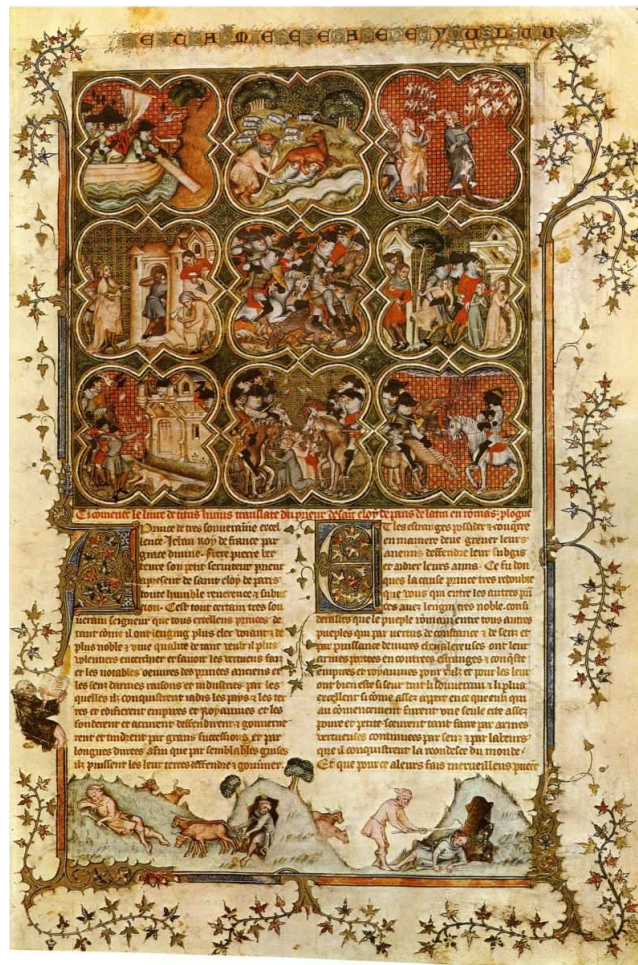 Ci comence le livre de titus livius translate du prieur de saint eloy de paris de latin en romans. plogue
Prince de tres souveraine excel
lence Jehan roy de france par
grace divine. frere pierre ber
ceure son petit serviteur prieur
a present de saint eloy de paris
toute humble reverence & subie
cion. Cest tout certain tres sou
verain seigneur que tous excellens princes de
tant come il ont lengin plus cler voiant & de
plus noble & vive qualite de tant veulent il plus
volentiers encerchier et savoir les vertueus fais
et les notables oeuvres des princes anciens et
les sens darmes raisons et industries par les
quelles ils conquistrent iadis les pays & les ter
res et edifierent empires et royaumes et les
fonderent et acrurent deffendirent & gouverne
rent et tindrent par grans successions et par
longues durees afin que par semblables guises
ilz puissent les leur terres deffendre & gouverner.
Et les estranges posseder & conquerre
en maniere deue grever leurs
anemis deffendre leur subgis
et aidier leurs amis. Ce fu don
ques la cause prince tres redoubte
que vous qui entre les autres prin
ces avez lengin tres noble. consi
derastes que le pueple romain entre tous autres
pueples qui par vertus de constance & de sens et
par puissance denvres chevalereuses ont leur
armes portees en contrees estranges & conqueste
empires et royaumes pour eulz et pour les leur
ont bien este li seur tuit li souverain & li plus
excellent si come assez appert en ce que euls qui
au commencement furent une seule cite assez
povre et petite sceurent tant faire par armes
vertueuses continuees par sens & par labeurs
que il conquistrent la reondesce du monde.
Et que pour ce a leurs fais merveilleus puet